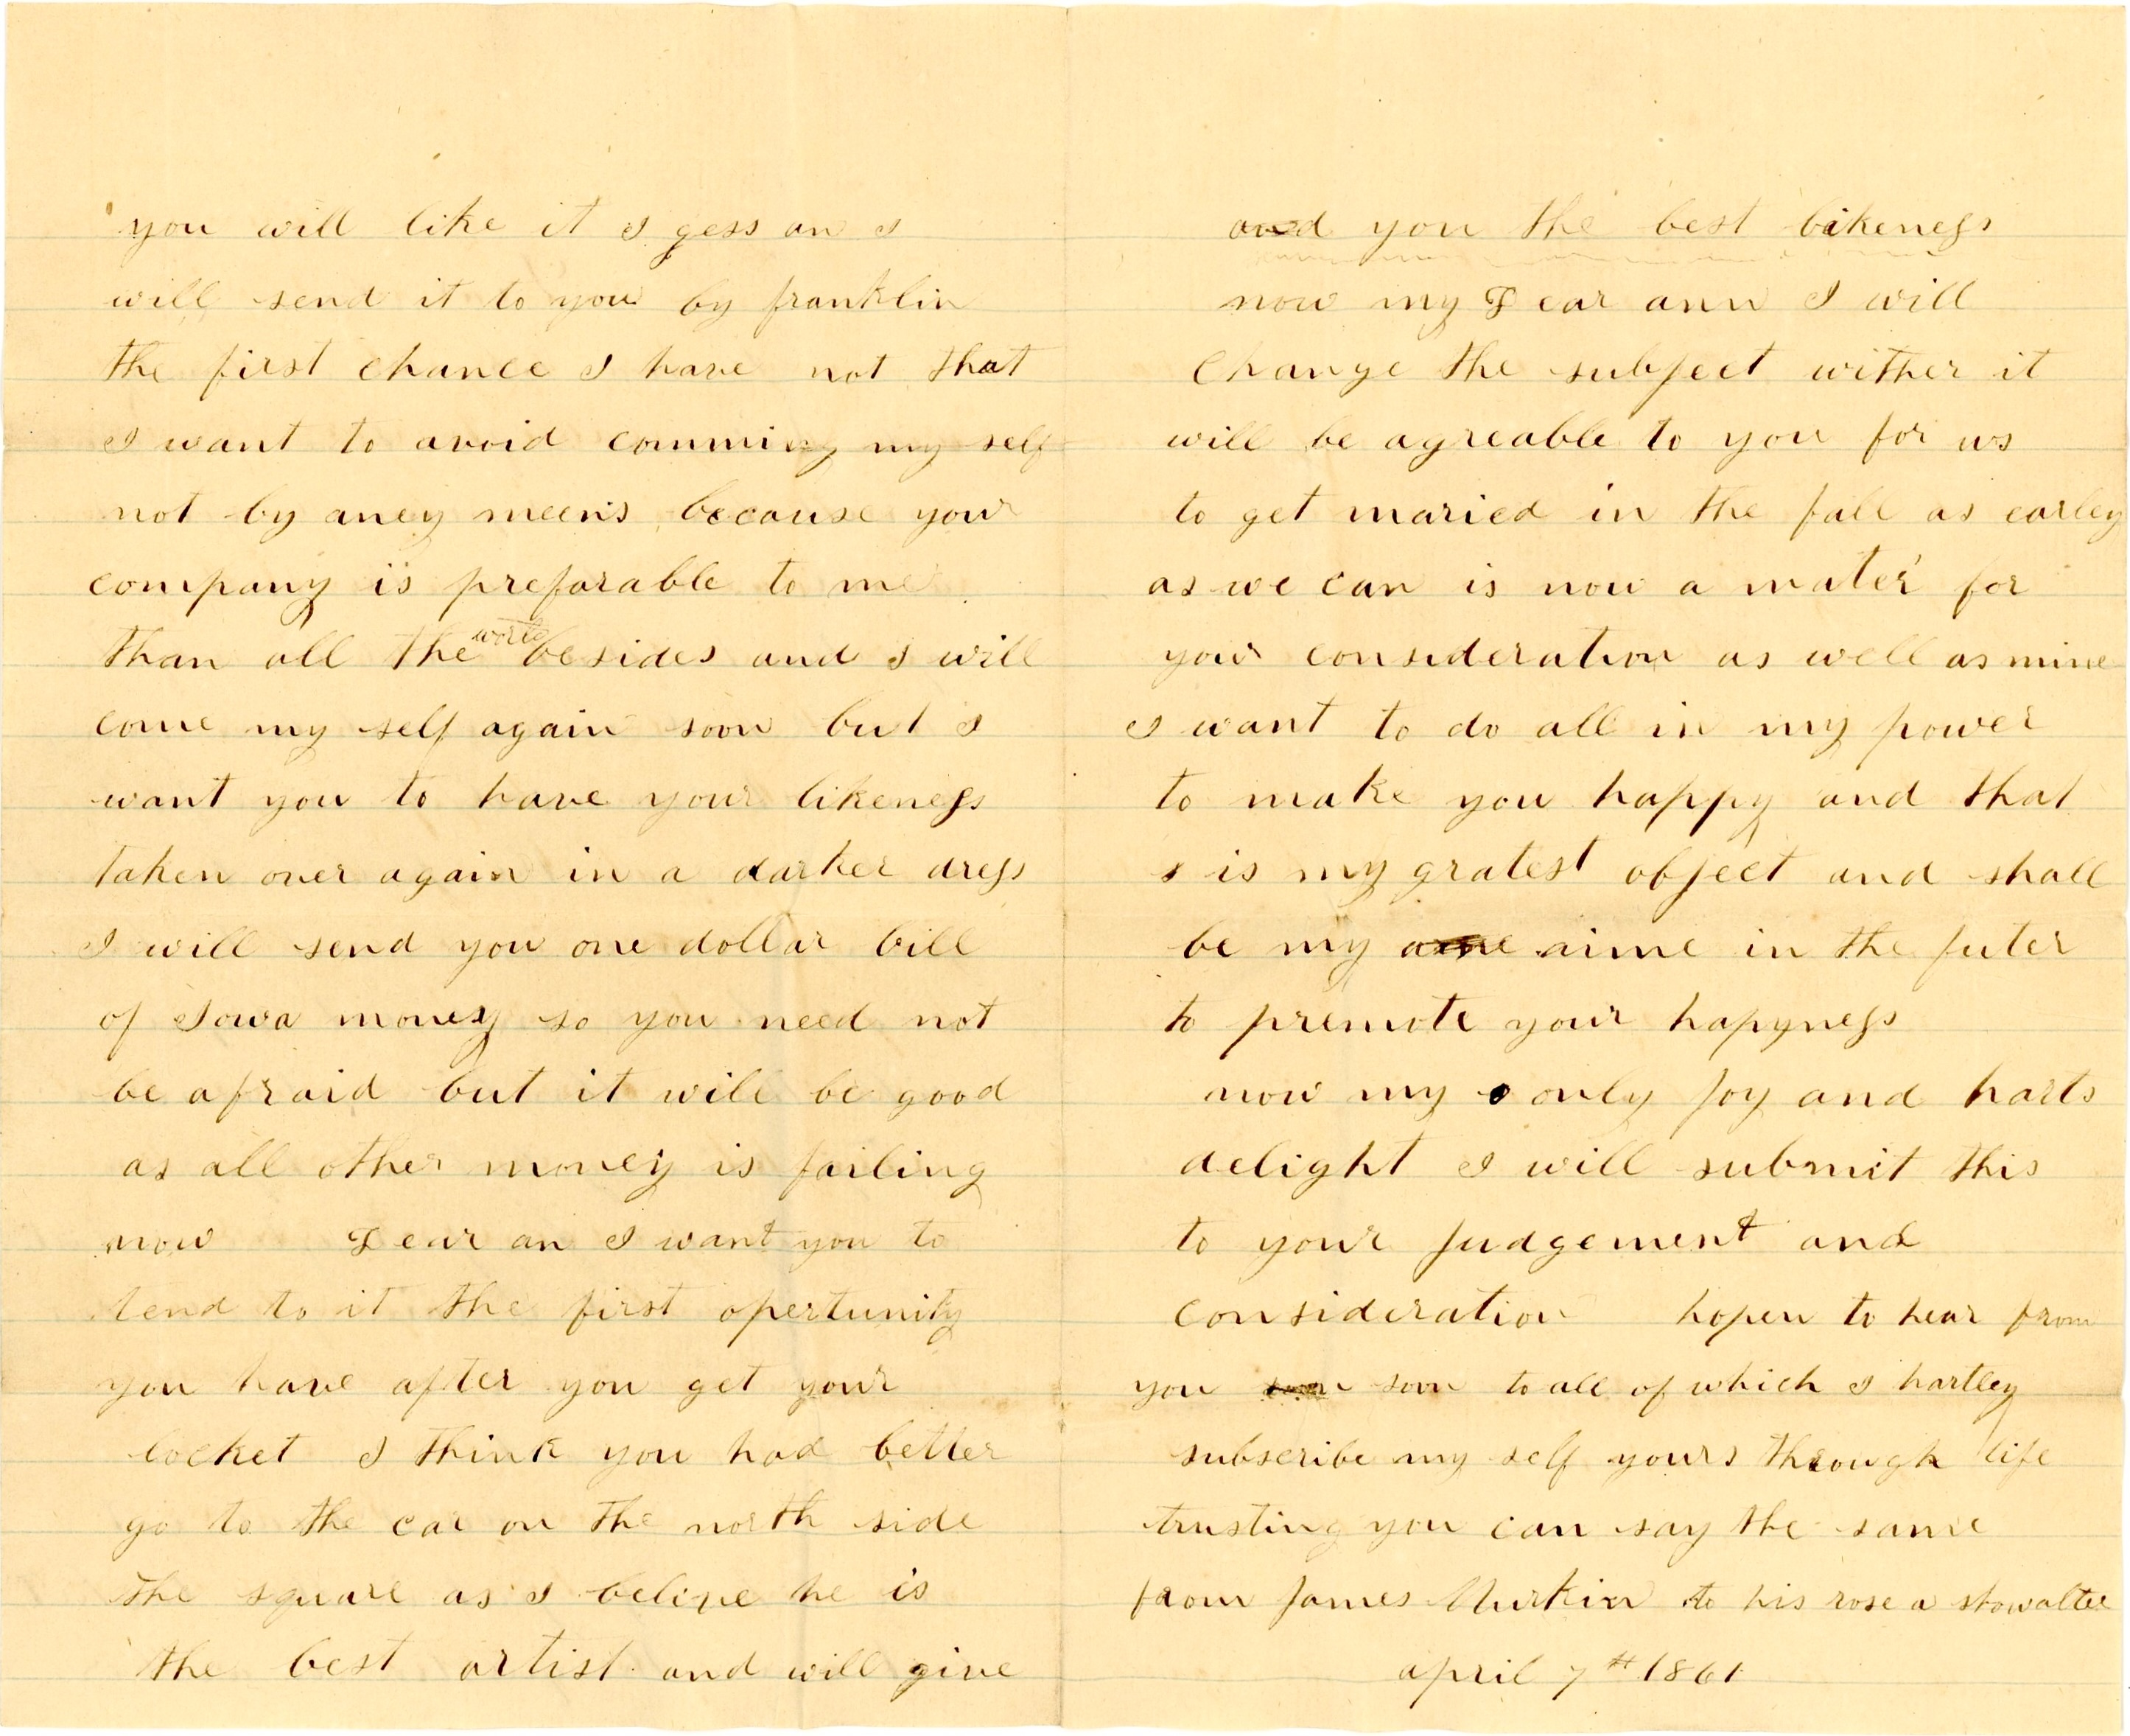 you will like it I gess an I
will send it to you by franklin
the first chance I have not that
I want to avoid comming my self
not by aney meens because your
company is preforable to me
than all the world besides and I will
come my self again soon but I
want you to have your likeness
taken over again in a darker dress
I will send you one dollar bill
of Iowa money so you need not
be afraid but it will be good
as all other money is failing
now Dear an I want you to
tend to it the first opertunity
you have after you get your
locket I think you had better
go to the car on the north side
the square as I belive he is
the best artist and will give
and you the best likeness
now my Dear ann I will
change the subject wither it
will be agreable to you for us
to get maried in the fall as earley
as we can is now a mater for
your consideration as well as mine
I want to do all in my power
to make you happy and that
s is my gratest object and shall
be my aime in the futer
to premote your hapyness
now my only joy and harts
delight I will submit this
to your judgement and
consideration hopen to hear from
you soon to all of which I hartley
subscribe my self yours through life
trusting you can say the same
from James to his rose a stowalter
april 7th 1861